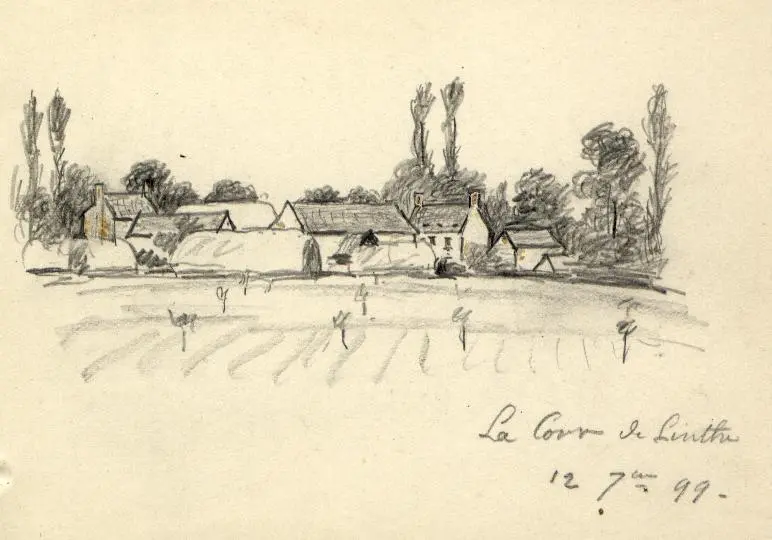 La Cour de Linthe
12 7bre 99 -